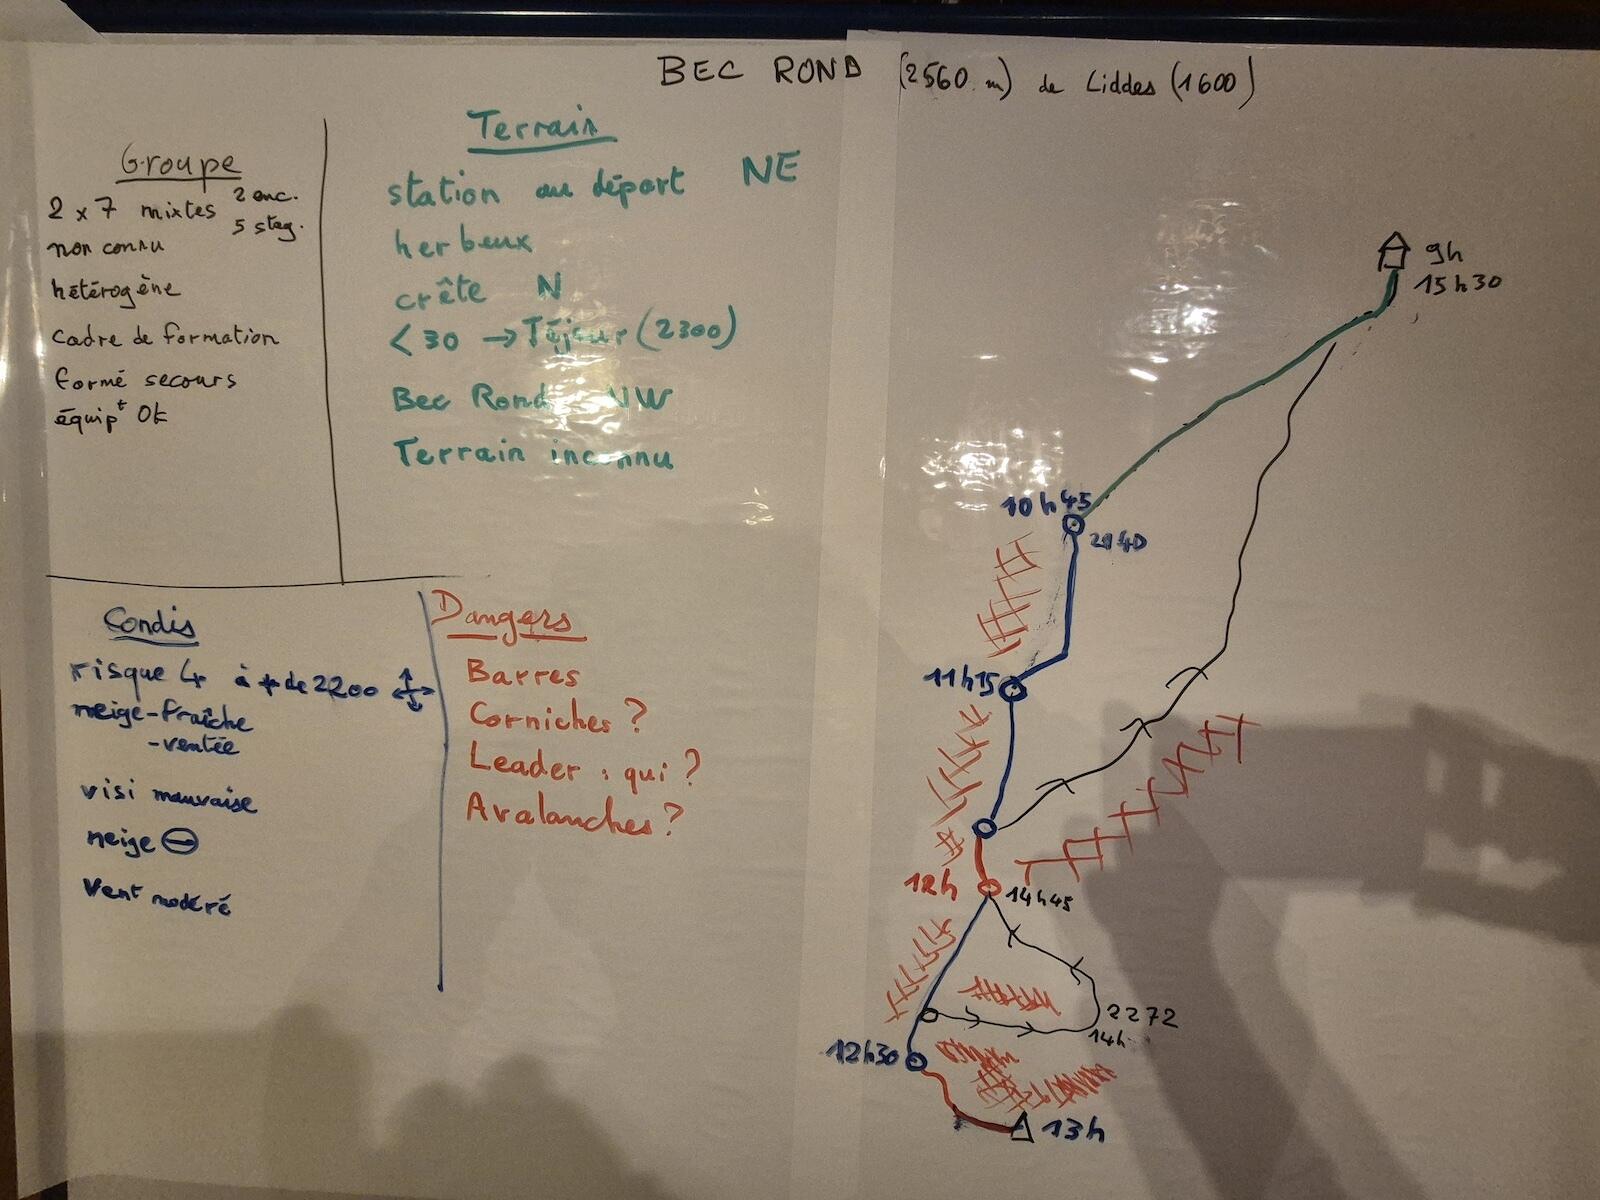 BEC ROND (2560 m) de Liddes (1600)
Groupe
2 x 7 mixtes 2 enc.
5 stag.
non connu
hétérogène
cadre de formation
formé secours
équipt Ok
Terrain
station au départ NE
herbeux
crête N
< 30 → Téjeur (2300)
Bec Rond NW
Terrain inconnu
Condis
risque 4 à + de 2200
neige-fraîche
-ventée
visi mauvaise
neige
Vent modéré
Dangers
Barres
Corniches ?
Leader : qui ?
Avalanches ?
9h
15h30
10h45
2140
11h15
12h
14h45
2272
14h
12h30
13h